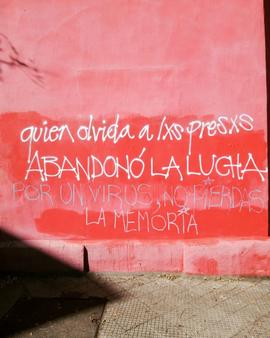 quien olvida a lxs presxs
ABANDONÓ LA LUCHA
POR UN VIRUS, NO PIERDAS
LA MEMORIA